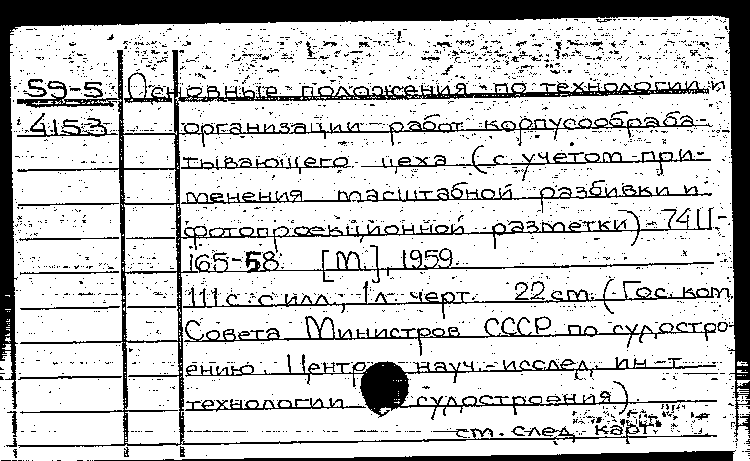 59-5 Основные положения по технологии и
4153 организации работ корпусообраба-
тывающего цеха (с учетом при-
менения масштабной разбивки и
фотопроекционной разметки) - 74II-
165-58. [М.], 1959.
111 с. с илл.; 1 л. черт. 22 см. (Гос. ком.
Совета Министров СССР по судостро-
ению. Центр. науч.-исслед. ин-т
технологии судостроения)
см. след. карт.